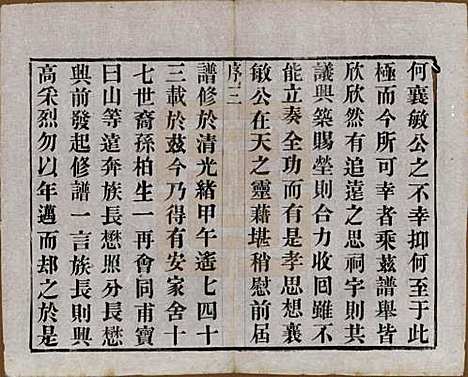 何襄敏公之不幸抑何至于此
極而今所可幸者乘玆譜舉皆
欣欣然有追遠之思祠宇則共
議興築賜塋則合力收回雖不
能立奏全功而有是孝思想襄
敏公在天之靈藉堪稍慰前屆
序三
譜修於清光緒甲午遙七四十
三載於玆今乃得有安家舍十
七世裔孫柏生一再會同甫寶
曰山等遠奔族長懋照分長懋
興前發起修譜一言族長則興
高采烈勿以年邁而却之於是